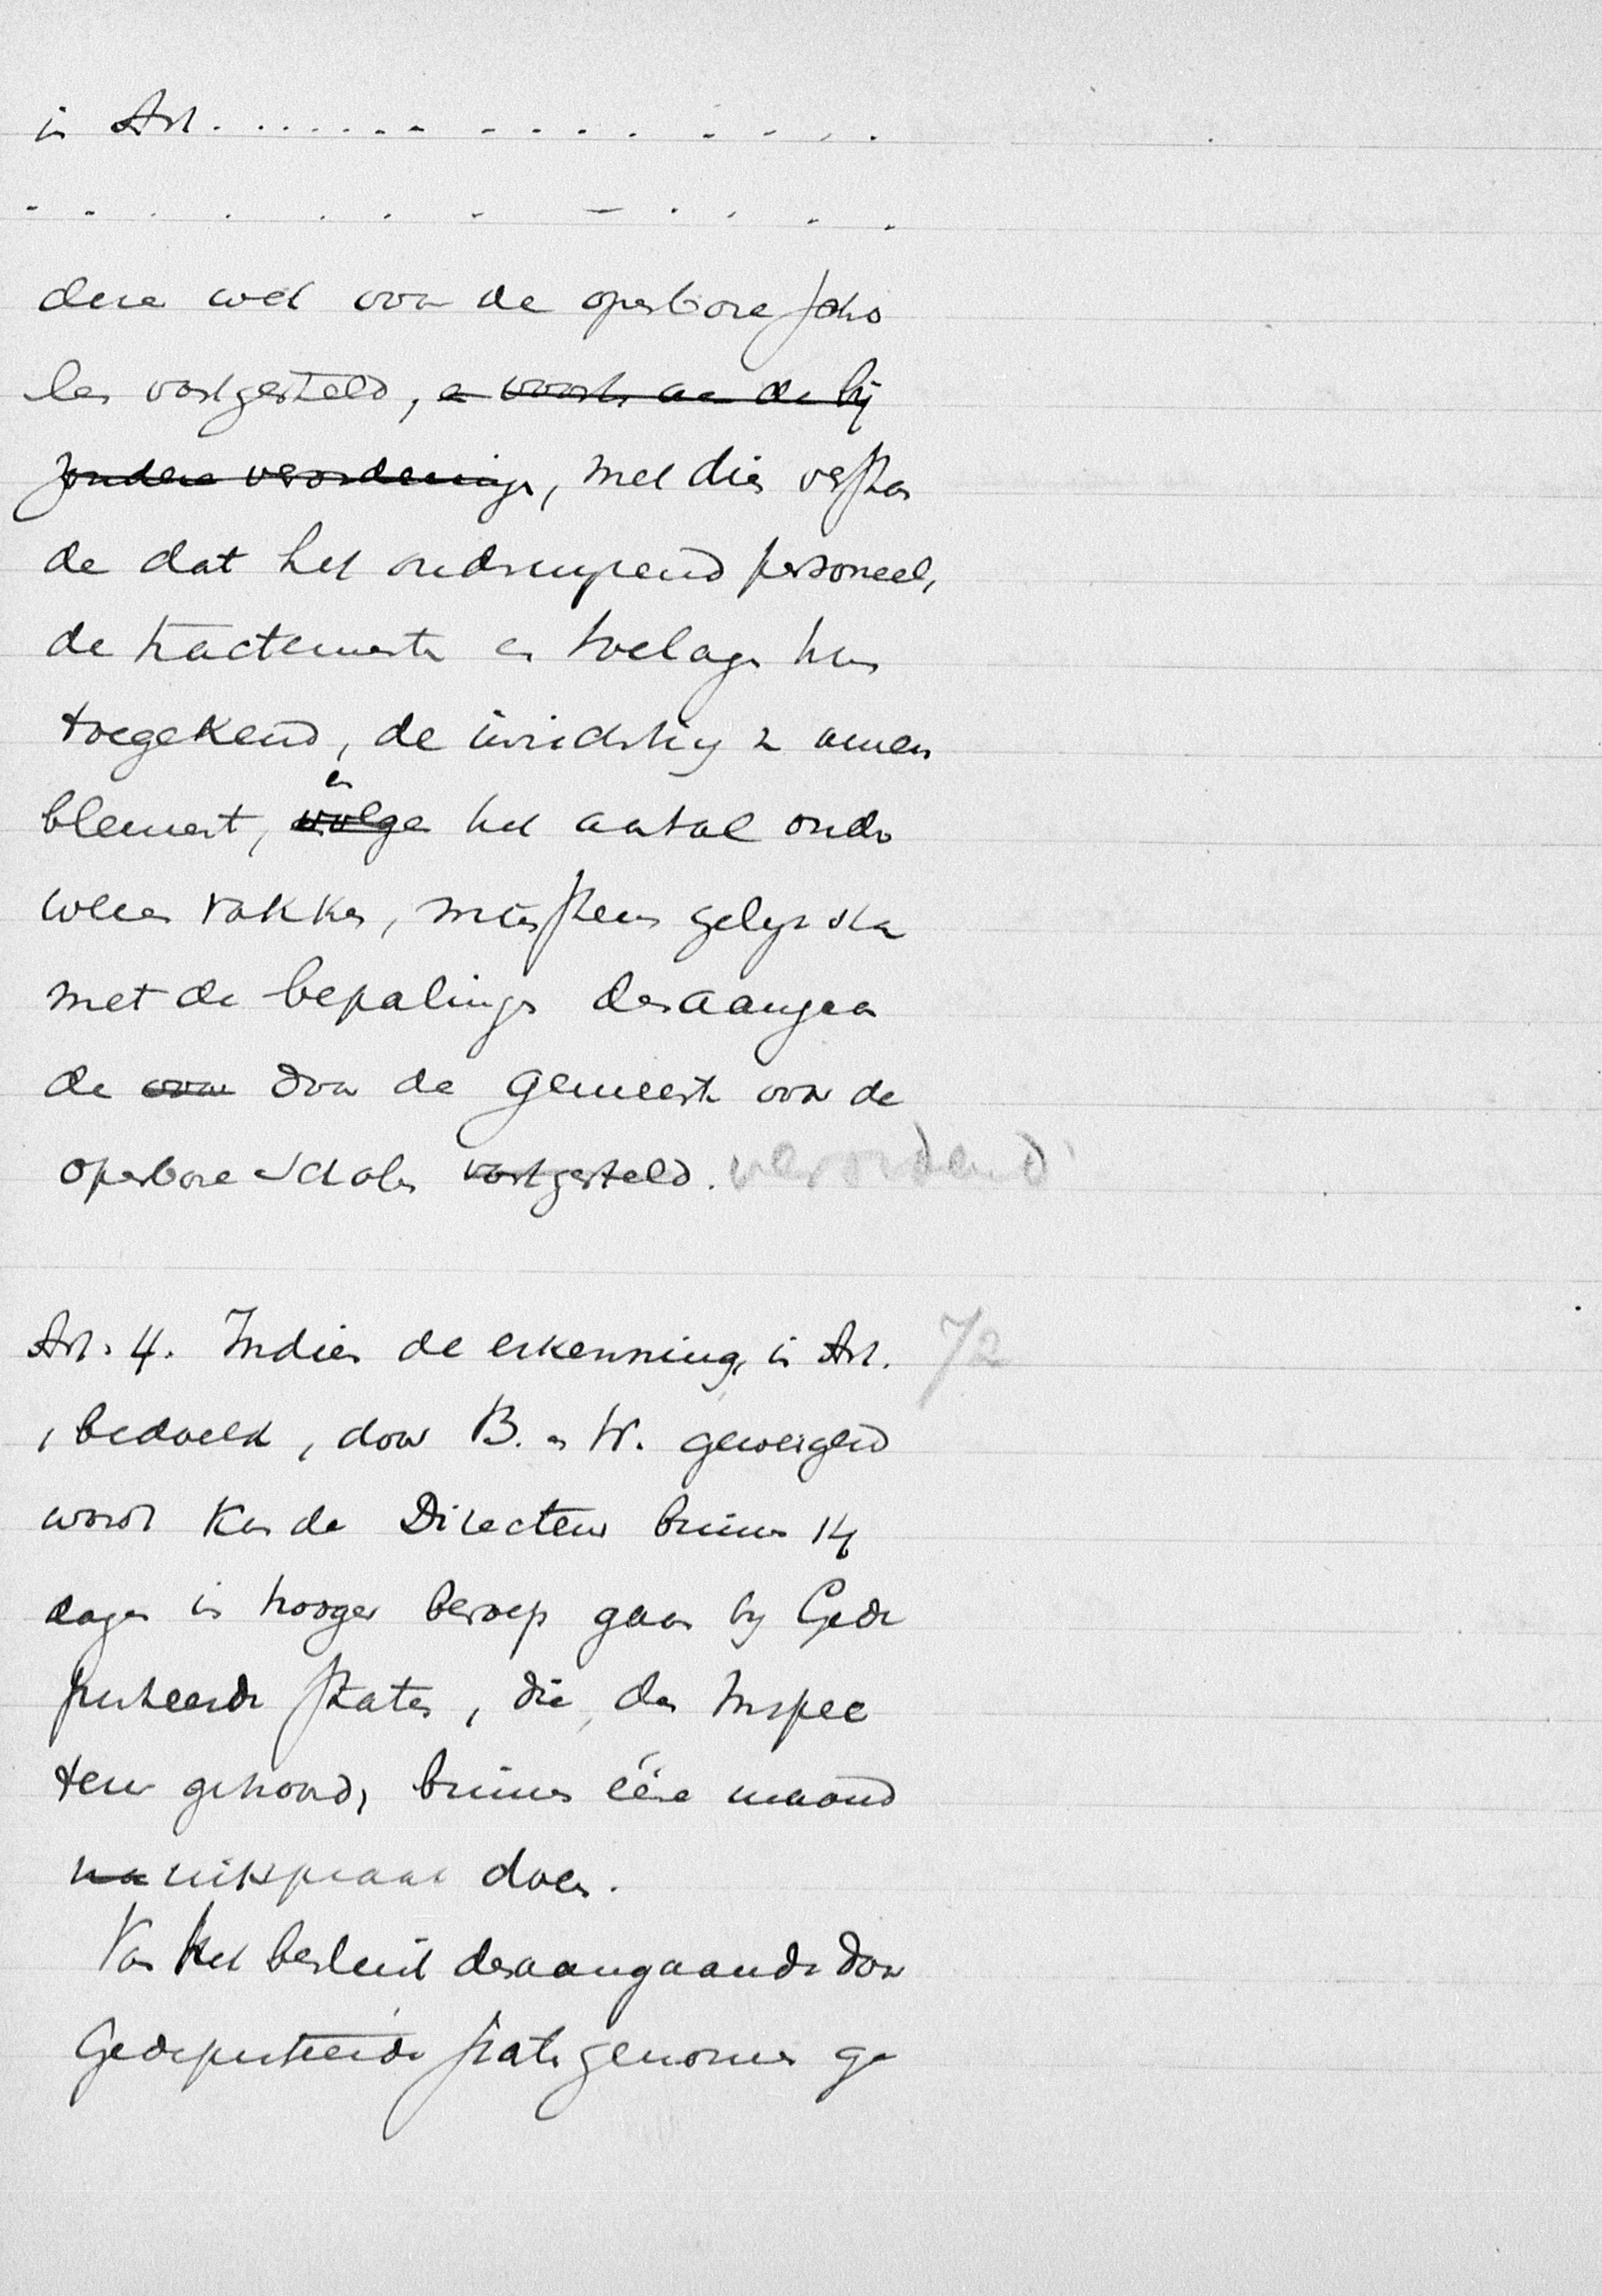 in Art. . . . . . . . . . . . . . . . .
. . . . . . . . . . . . .
deze wet voor de openbare scho
len vastgesteld, en voorts aan de bij
zondere verordeningen, met dien verstan
de dat het onderwijzend personeel,
de tractementen en toelagen hun
toegekend, de inrichting & ameu
blement, volgens en het aantal onder
wezen vakken, minstens gelijk staan
met de bepalingen desaangaan
de voor door de gemeente voor de
openbare scholen vastgesteld. verordend
Art. 4. Indien de erkenning, in Art. 72
, bedoeld, door B. en W. geweigerd
wordt kan de Directeur binnen 14
dagen in hooger beroep gaan by Gede
puteerde Staten, die, den Inspec
teur gehoord, binnen ééne maand
na uitspraak doen.
Van het besluit desaangaande door
Gedeputeerde Staten genomen ge